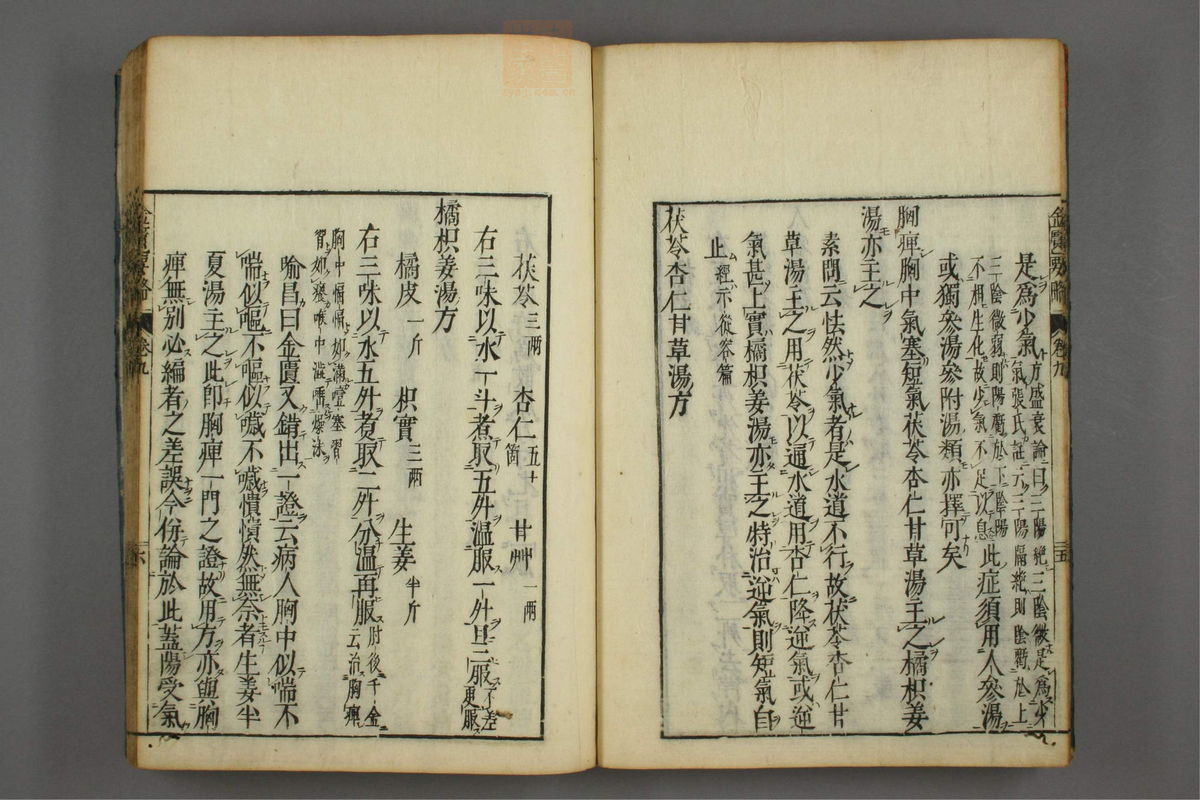 金匱要略 卷九 五
是爲少氣 方盛衰論曰三陽絶三陰微是爲少
氣張氏註云三陽隔絶則陰虧於上
三陰微弱則陽虧於下陰陽
不相生化故少氣不足以息 此症須用人參湯
或獨參湯參附湯類亦擇可矣
胸痺胸中氣塞短氣茯苓杏仁甘草湯主之橘枳姜
湯亦主之
素問云怯然少氣者是水道不行故茯苓杏仁甘
草湯主之用茯苓以通水道用杏仁降逆氣或逆
氣甚上實橘枳姜湯亦主之特治逆氣則短氣自
止 經示從容篇
茯苓杏仁甘草湯方
茯苓三兩 杏仁五十箇 甘艸一兩
右三味以水一斗煮取五升温服一升日三服 不差更服
橘枳姜湯方
橘皮一斤 枳實三兩 生姜半斤
右三味以水五升煮取二升分温再服 肘後千金云治胸痺
胸中愊愊如滿噎塞習
習如痒喉中澁唾燥沫
喻昌曰金匱又錯出一證云病人胸中似喘不
喘似嘔不嘔似噦不噦憒憒然無奈者生姜半
夏湯主之此卽胸痺一門之證故用方亦與胸
痺無別必編者之差誤今併論於此蓋陽受氣
金匱要略 卷九 六